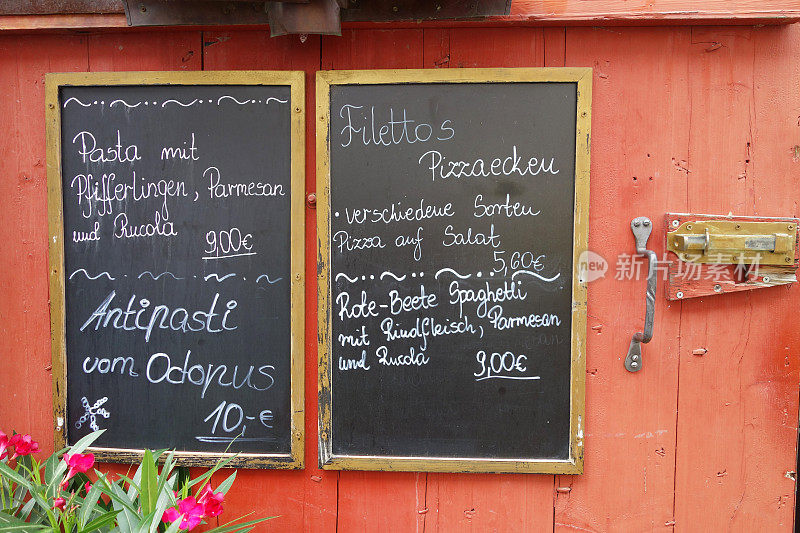 Pasta mit
Pfifferlingen, Parmesan
und Rucola
9,00€
Antipasti
vom Odopus
10,-€
Filettos
Pizzaecken
• verschiedene Sorten
Pizza auf Salat
5,60€
Rote-Beete Spaghetti
mit Rindfleisch, Parmesan
und Rucola
9,00€
新图网